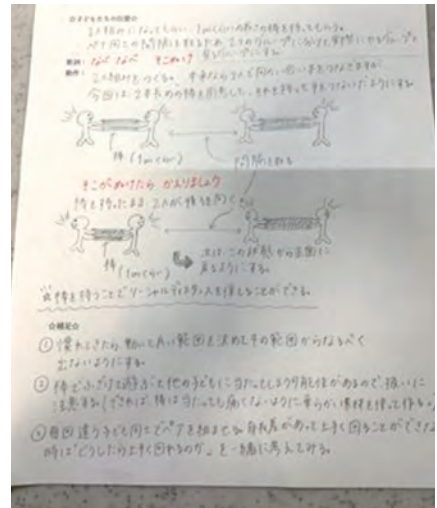 ☆子どもたちの位置☆
2人組みになってもらい、1mくらいの長さの棒を持ってもらう。
ペア同士の間隔を取るため、2つのグループに分けて実際にやるグループと
見るグループにする。
歌詞：なべ なべ そこぬけ
動作：2人組みをつくる。本来なら2人で向かい合い手をつなぎますが、
今回は、2本の棒を用意して、それを持って手をつないだようにする。
棒(1mくらい)
間隔をとる
そこがぬけたら かえりましょう
棒を持ったまま、2人が後ろを向く。
棒(1mくらい)
次は、この状態から正面に
戻るようにする。
☆棒を持つことでソーシャルディスタンスを保しることができる。
☆補足☆
① 慣れてきたら、動いて良い範囲を決めてその範囲からなるべく
出ないようにする。
② 棒でふざけて遊ぶと他の子どもに当たってしまう可能性があるので、扱いに
注意する(できれば、棒は当たっても痛くないように柔らかい素材を使って作る。)
③ 毎回違う子ども同士でペアを組ませる。身長差があって上手く回ることができない
時は「どうしたら上手く回れるのか」を一緒に考えてみる。